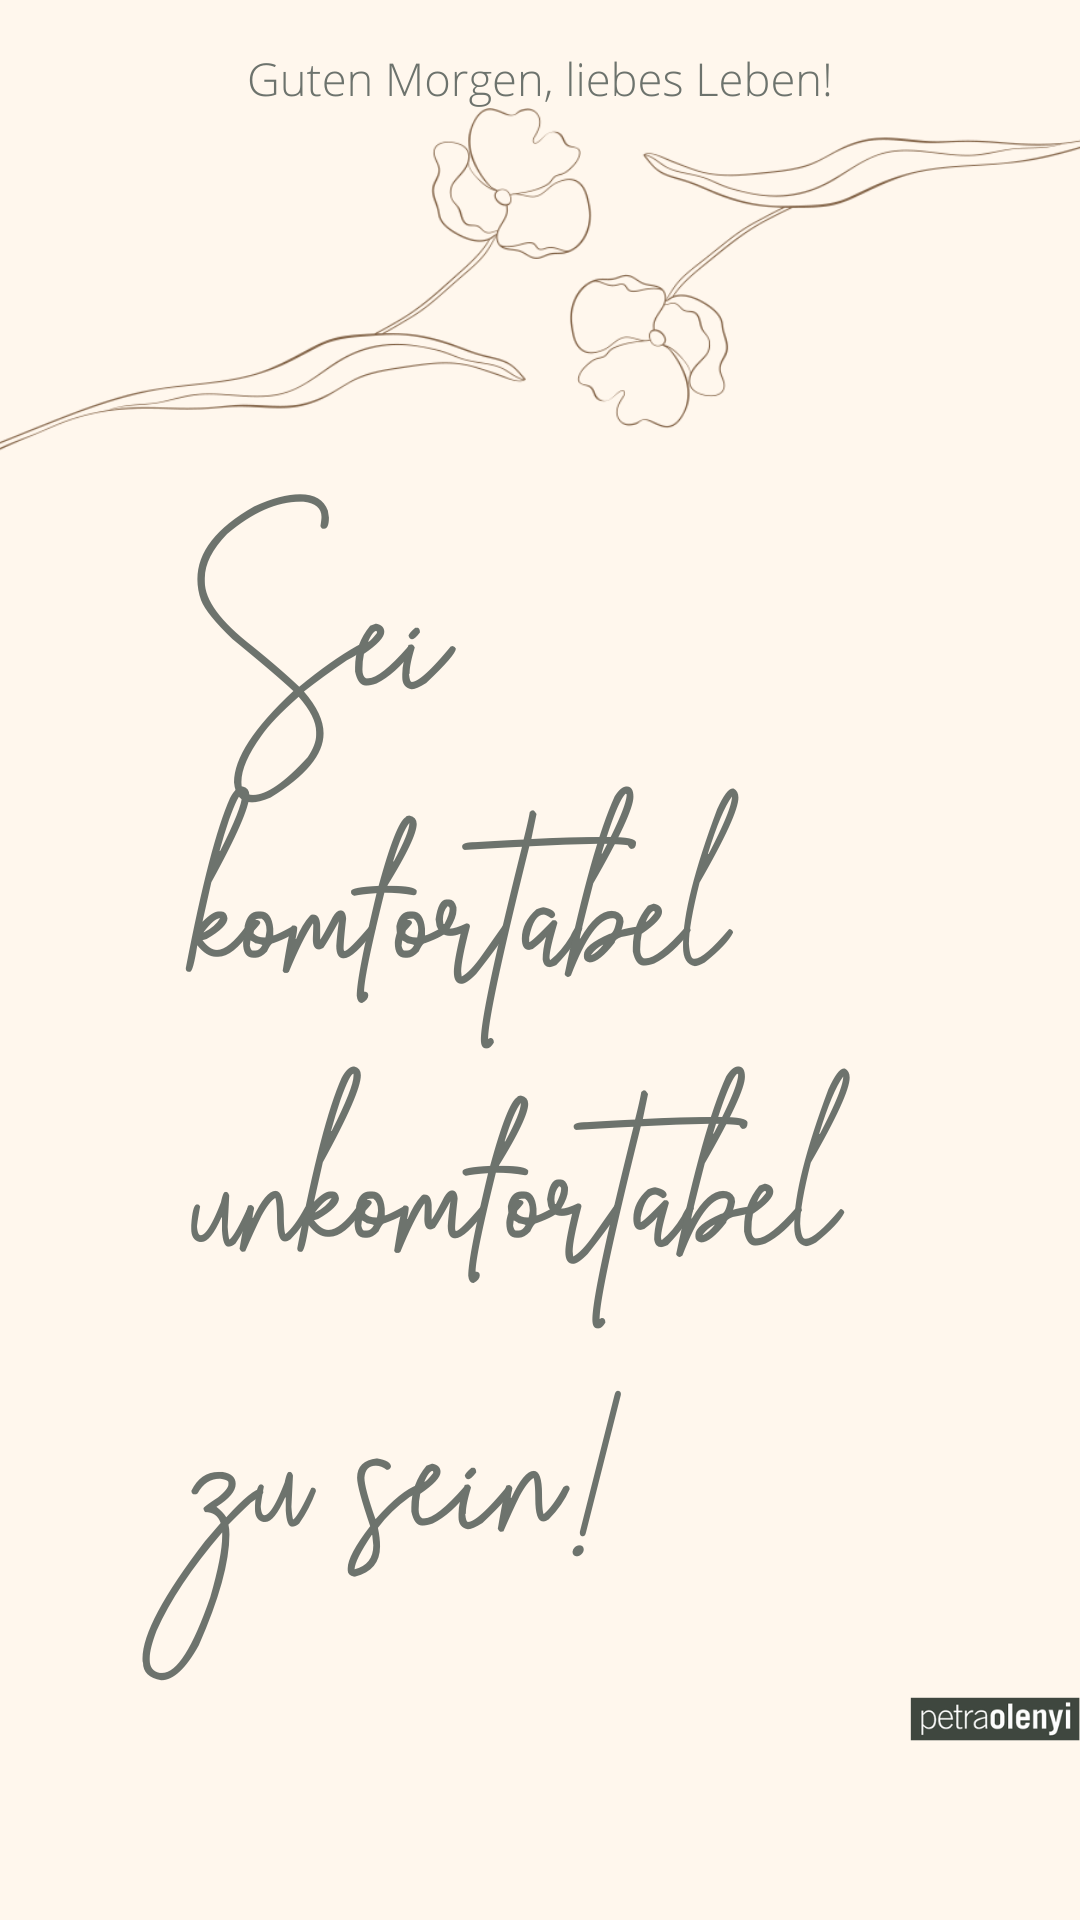 Guten Morgen, liebes Leben!
Sei
komfortabel
unkomfortabel
zu sein!
petraolenyi